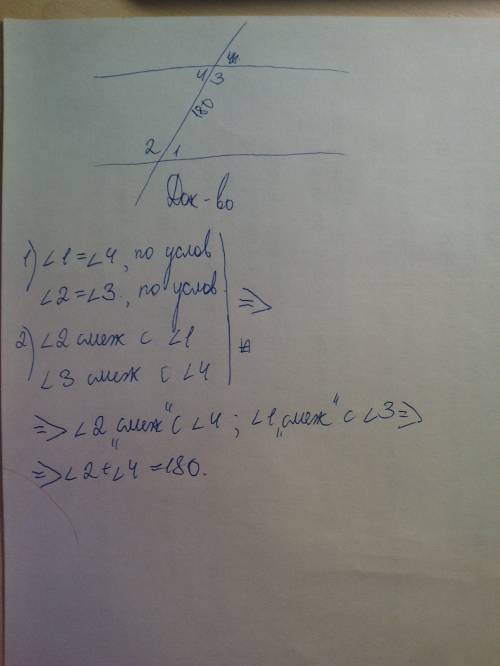 4 3
180
2 1
Док-во
1) ∠1=∠4, по услов
∠2=∠3, по услов
=>
2) ∠2 смеж с ∠1
∠3 смеж с ∠4
=> ∠2 „смеж" с ∠4 ; ∠1 „смеж" с ∠3 =>
=> ∠2+∠4=180.